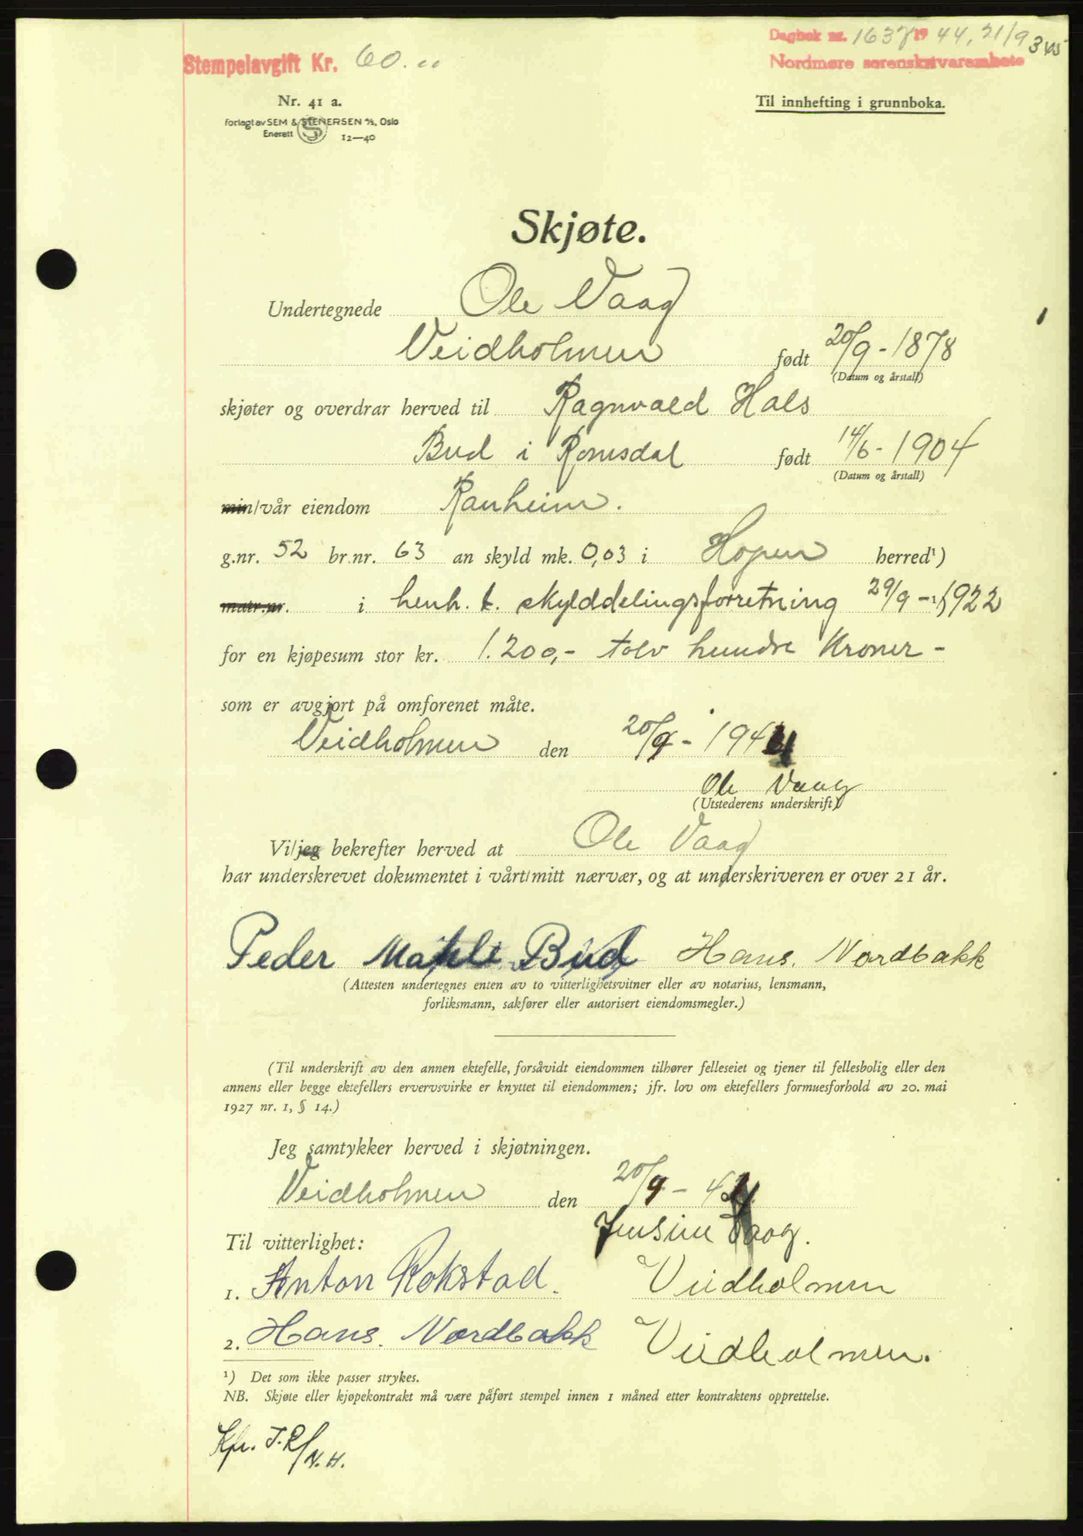 Stempelavgift Kr. 60.00
Dagbok nr. 1637 1944, 21/9
Nordmøre sorenskriverembete
Nr. 41 a.
Forlagt av SEM & STENERSEN A/S, Oslo
Enerett 12—40
Til innhefting i grunnboka.
Skjøte.
Undertegnede Ole Vaag
Veidholmen født 20/9 - 1878
(Datum og årstall)
skjøter og overdrar herved til Ragnvald Hals
Bud i Romsdal født 14/6 - 1904
(Datum og årstall)
min/vår eiendom Ranheim.
g.nr. 52 br.nr. 63 an skyld mk. 0,03 i Hopen herred¹)
matr.nr. i henh. t. skylddelingsforretning 29/9 - 1922
for en kjøpesum stor kr. 1.200,- tolv hundre Kroner -
som er avgjort på omforenet måte.
Veidholmen den 20/9 - 1944
Ole Vaag
(Utstederens underskrift)
Vi/jeg bekrefter herved at Ole Vaag
har underskrevet dokumentet i vårt/mitt nærvær, og at underskriveren er over 21 år.
Peder Bud Hans. Nordbakk
(Attesten undertegnes enten av to vitterlighetsvitner eller av notarius, lensmann,
forliksmann, sakfører eller autorisert eiendomsmegler.)
(Til underskrift av den annen ektefelle, forsåvidt eiendommen tilhører felleseiet og tjener til fellesbolig eller den
annens eller begge ektefellers ervervsvirke er knyttet til eiendommen; jfr. lov om ektefellers formuesforhold av 20. mai
1927 nr. 1, § 14.)
Jeg samtykker herved i skjøtningen.
Veidholmen den 20/9 - 44
Jensine Vaag.
Til vitterlighet:
1. Anton Rokstad. Veidholmen
2. Hans. Nordbakk Veidholmen.
¹) Det som ikke passer strykes.
NB. Skjøte eller kjøpekontrakt må være påført stempel innen 1 måned etter kontraktens opprettelse.
Kfr. J.R/N.H.